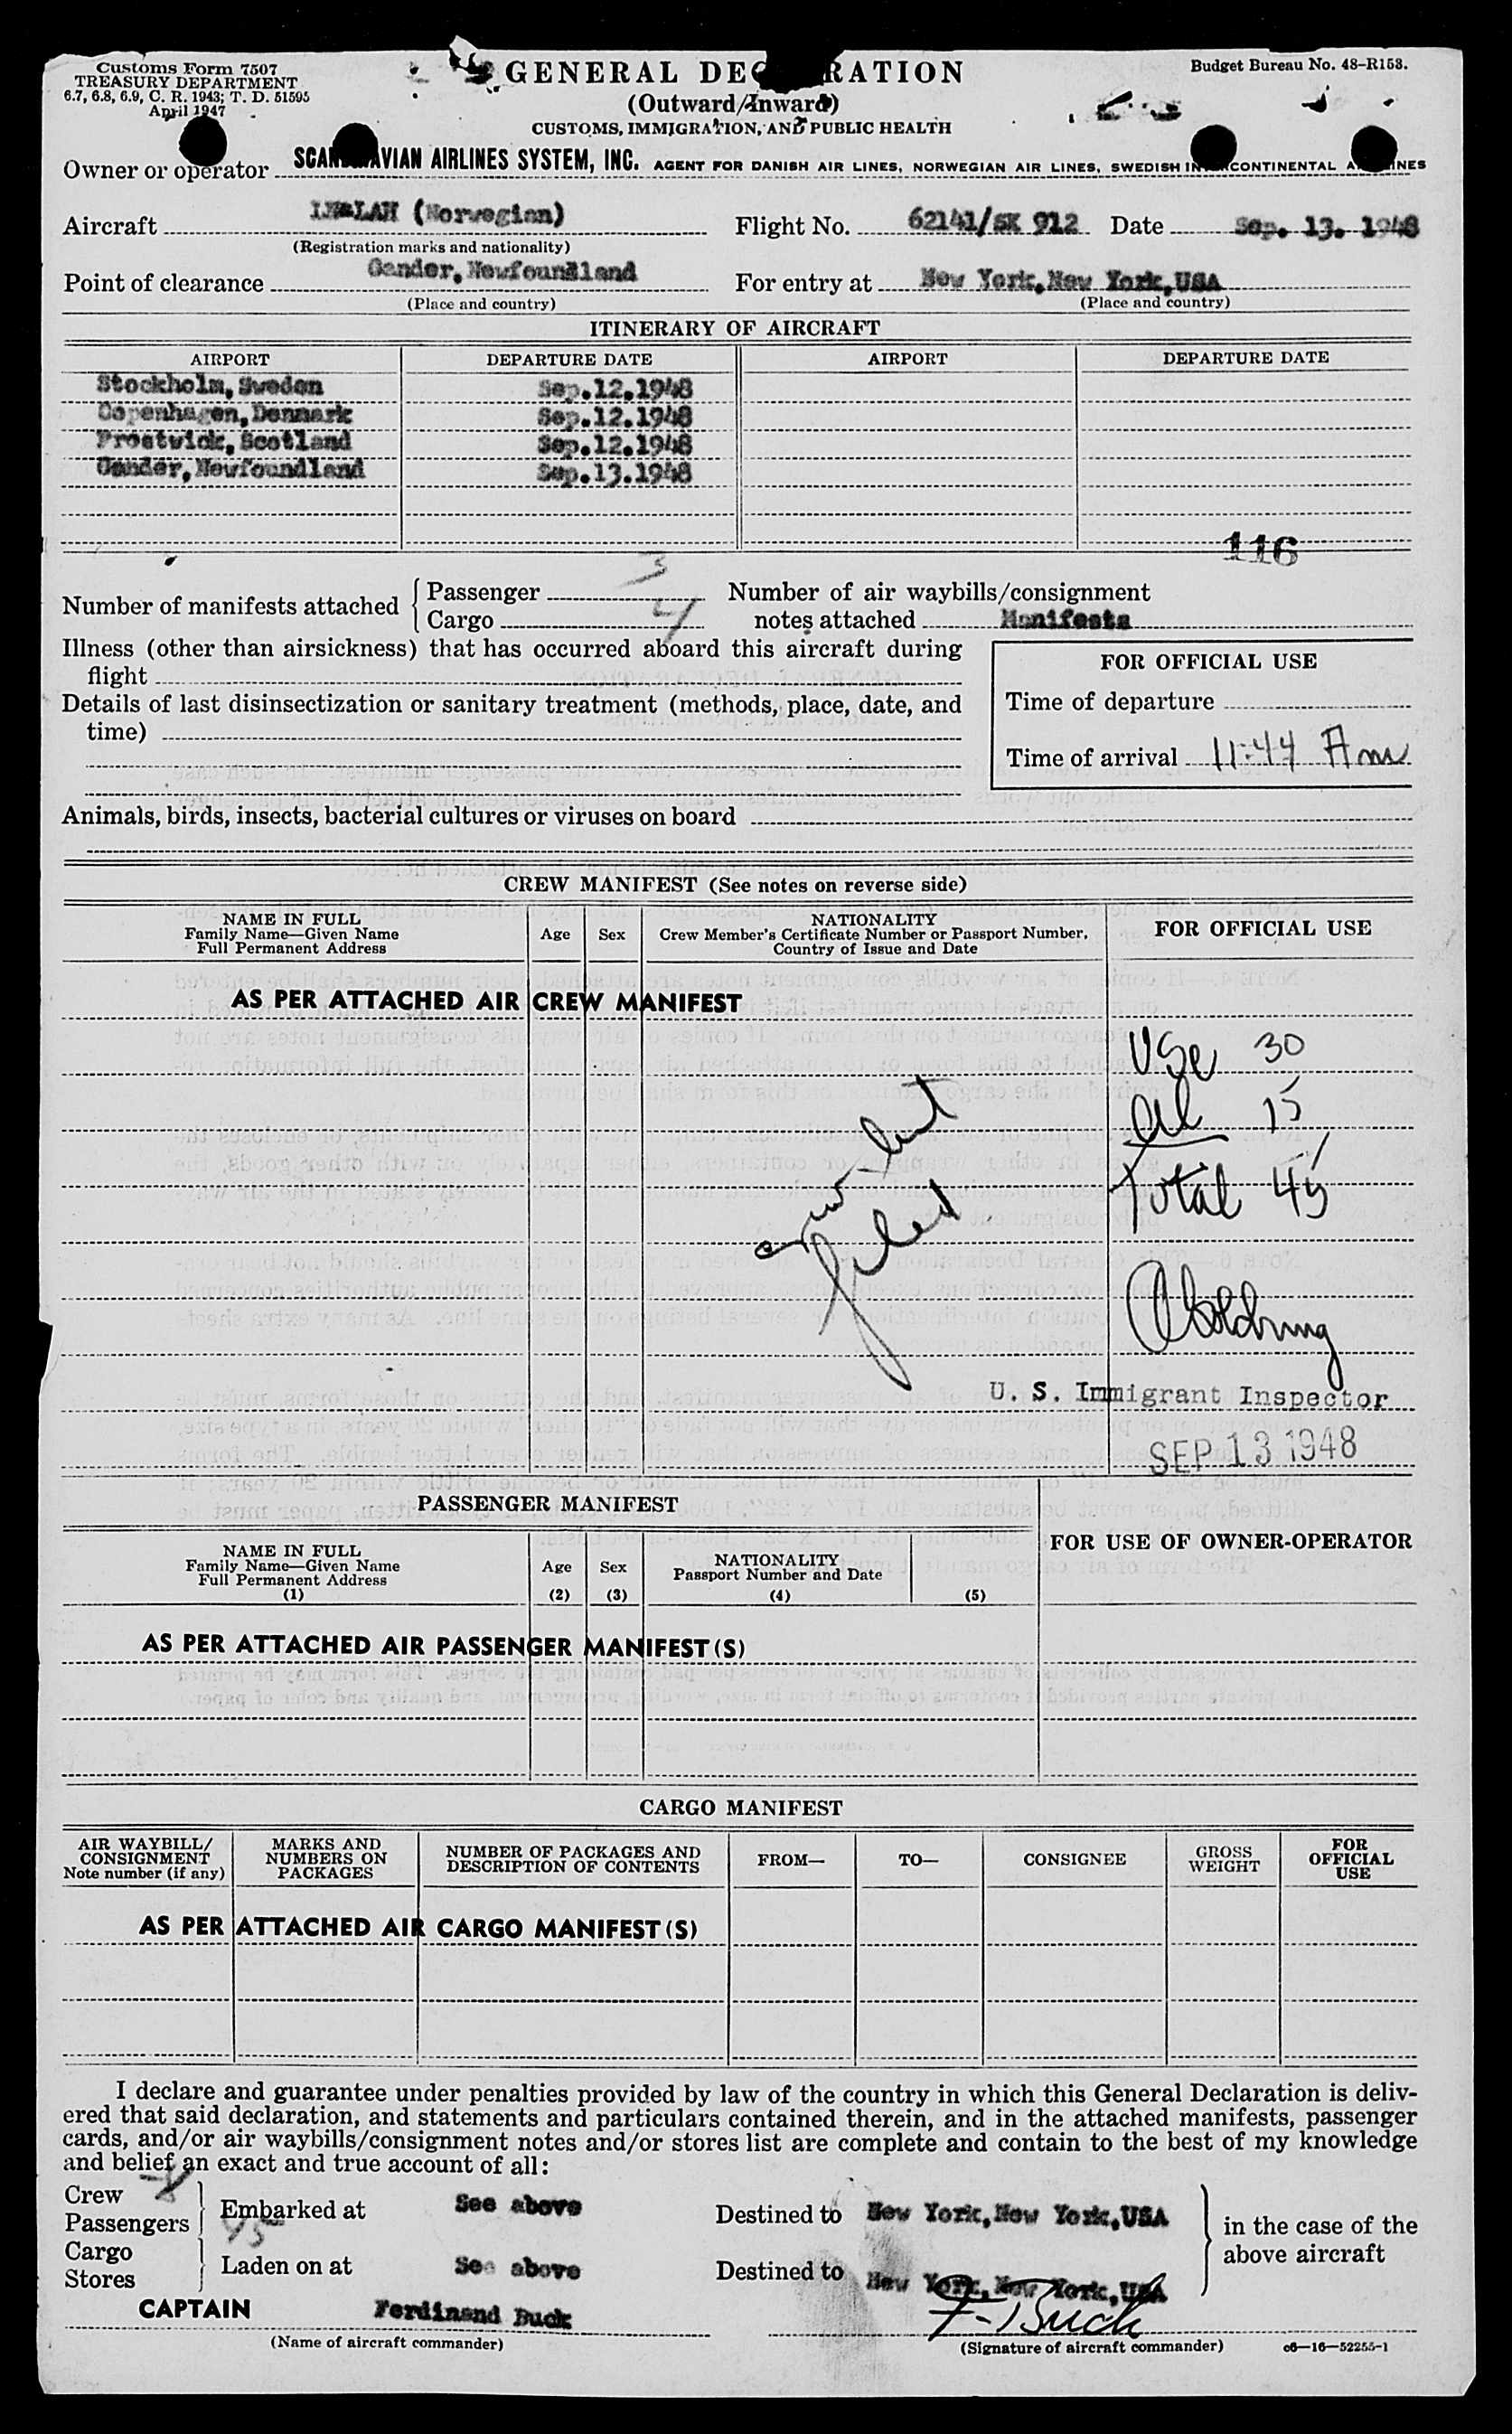 Customs Form 7507
TREASURY DEPARTMENT
6.7, 6.8, 6.9, C. R. 1943; T. D. 51595
April 1947
GENERAL DECLARATION
(Outward/Inward)
CUSTOMS, IMMIGRATION, AND PUBLIC HEALTH
Budget Bureau No. 48-R158.
Owner or operator SCANDINAVIAN AIRLINES SYSTEM, INC. AGENT FOR DANISH AIR LINES, NORWEGIAN AIR LINES, SWEDISH INTERCONTINENTAL AIRLINES
Aircraft (Norwegian) Flight No. 62141/SK 912 Date Sep. 13. 1948
(Registration marks and nationality)
Point of clearance Gander, Newfoundland For entry at New York, New York, USA
(Place and country) (Place and country)
ITINERARY OF AIRCRAFT
AIRPORT DEPARTURE DATE AIRPORT DEPARTURE DATE
Stockholm, Sweden Sep.12.1948
Copenhagen, Denmark Sep.12.1948
Prestwick, Scotland Sep.12.1948
Gander, Newfoundland Sep.13.1948
116
Number of manifests attached
Passenger 3
Cargo 4
Number of air waybills/consignment
notes attached Manifests
Illness (other than airsickness) that has occurred aboard this aircraft during
flight
Details of last disinsectization or sanitary treatment (methods, place, date, and
time)
FOR OFFICIAL USE
Time of departure
Time of arrival 11:44 Am
Animals, birds, insects, bacterial cultures or viruses on board
CREW MANIFEST (See notes on reverse side)
NAME IN FULL
Family Name—Given Name
Full Permanent Address
Age
Sex
NATIONALITY
Crew Member's Certificate Number or Passport Number,
Country of Issue and Date
FOR OFFICIAL USE
AS PER ATTACHED AIR CREW MANIFEST
USC 30
al 15
Total 45
crew list
filed
U. S. Immigrant Inspector
SEP 13 1948
PASSENGER MANIFEST
NAME IN FULL
Family Name—Given Name
Full Permanent Address
(1)
Age
(2)
Sex
(3)
NATIONALITY
Passport Number and Date
(4)
(5)
FOR USE OF OWNER-OPERATOR
AS PER ATTACHED AIR PASSENGER MANIFEST(S)
CARGO MANIFEST
AIR WAYBILL/
CONSIGNMENT
Note number (if any)
MARKS AND
NUMBERS ON
PACKAGES
NUMBER OF PACKAGES AND
DESCRIPTION OF CONTENTS
FROM—
TO—
CONSIGNEE
GROSS
WEIGHT
FOR
OFFICIAL
USE
AS PER ATTACHED AIR CARGO MANIFEST(S)
I declare and guarantee under penalties provided by law of the country in which this General Declaration is deliv-
ered that said declaration, and statements and particulars contained therein, and in the attached manifests, passenger
cards, and/or air waybills/consignment notes and/or stores list are complete and contain to the best of my knowledge
and belief an exact and true account of all:
Crew 8
Passengers 45
Embarked at See above Destined to New York, New York, USA
Cargo
Stores
Laden on at See above Destined to New York, New York, USA
in the case of the
above aircraft
CAPTAIN Ferdinand Buck F. Buck
(Name of aircraft commander) (Signature of aircraft commander) c6—16—52255-1